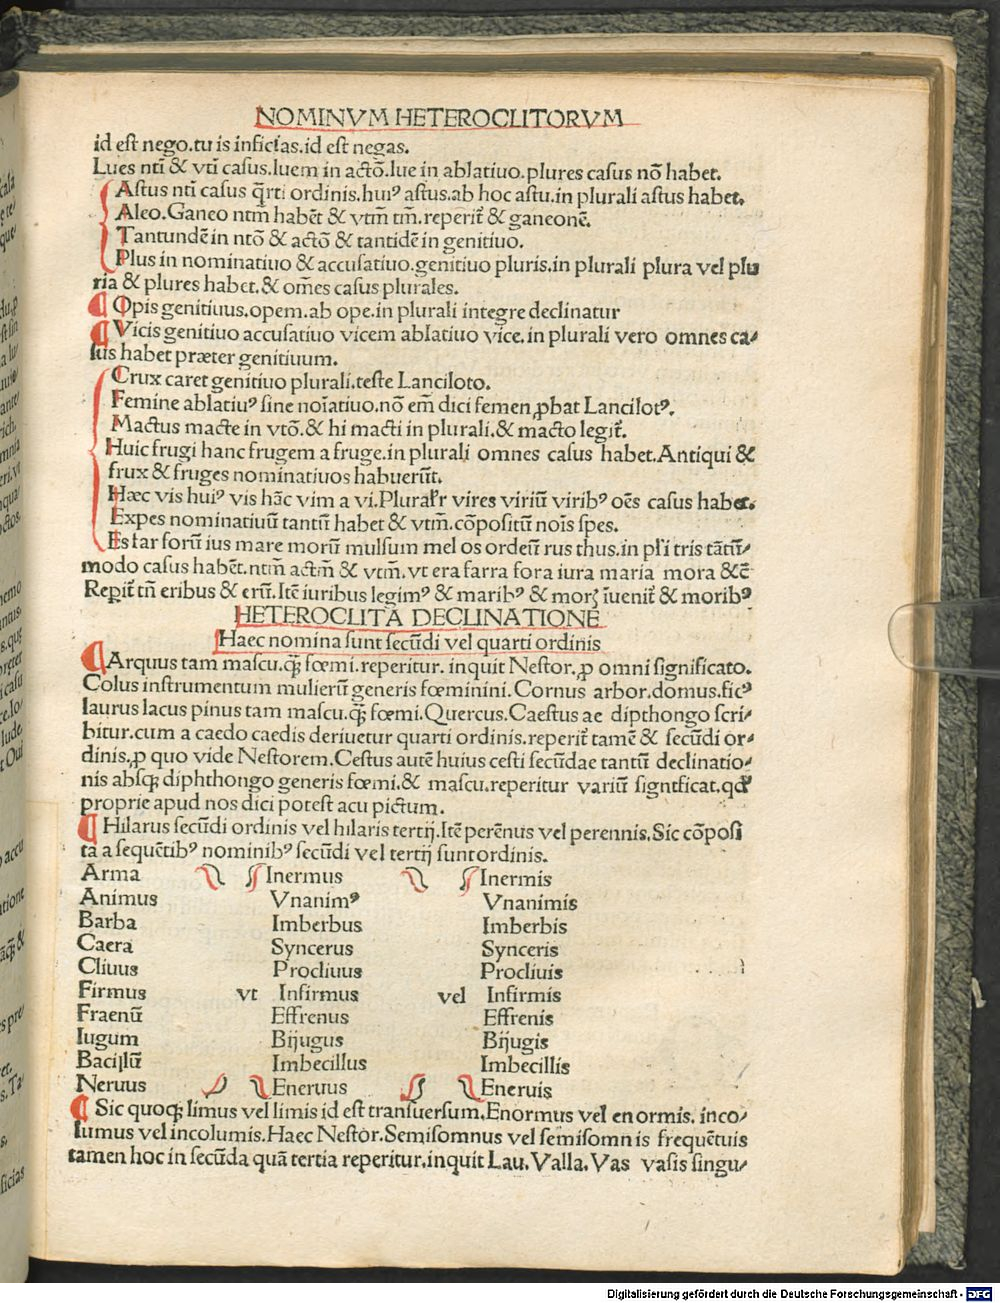 NOMINVM HETEROCLITORVM
id eſt nego.tu is inficias.id eſt negas.
Lues ntī & vtī caſus.luem in actō.lue in ablatiuo.plures caſus nō habet.
Aſtus ntī caſus q̄rti ordinis.huiꝰ aſtus.ab hoc aſtu.in plurali aſtus habet.
Aleo.Ganeo ntm̄ habēt & vtm̄ tm̄.reperit̄ & ganeonē.
Tantundē in ntō & actō & tantidē in genitiuo.
Plus in nominatiuo & accuſatiuo.genitiuo pluris.in plurali plura vel plu
ria & plures habet.& om̄es caſus plurales.
¶ Opis genitiuus.opem.ab ope.in plurali integre declinatur
¶ Vicis genitiuo accuſatiuo vicem ablatiuo vice.in plurali vero omnes ca⸗
ſus habet præter genitiuum.
Crux caret genitiuo plurali.teſte Lanciloto.
Femine ablatiuꝰ ſine noīatiuo.nō em̄ dici femen ꝓbat Lancilotꝰ.
Mactus macte in vtō.& hi macti in plurali.& macto legit̄.
Huic frugi hanc frugem a fruge.in plurali omnes caſus habet.Antiqui &
frux & fruges nominatiuos habuerūt.
Hæc vis huiꝰ vis hāc vim a vi.Plural̄r vires viriū viribꝰ oēs caſus habet.
Expes nominatiuū tantū habet & vtm̄.cōpoſitū noīs ſpes.
Es far forū ius mare morū mulſum mel os ordeū rus thus.in pl̄i tris tātū⸗
modo caſus habēt.ntm̄ actm̄ & vtm̄.vt era farra fora iura maria mora &ē
Repit̄ tn̄ eribus & erū.Itē iuribus legimꝰ & maribꝰ & morꝝ īuenit̄ & moribꝰ
HETEROCLITA DECLINATIONE
Haec nomina ſunt ſecūdi vel quarti ordinis
¶ Arquus tam maſcu.qꝫ fœmi.reperitur. inquit Neſtor.ꝓ omni ſignificato.
Colus inſtrumentum mulierū generis fœminini.Cornus arbor.domus.ficꝰ
laurus lacus pinus tam maſcu.qꝫ fœmi.Quercus.Caeſtus ae dipthongo ſcri⸗
bitur.cum a caedo caedis deriuetur quarti ordinis.reperit̄ tamē & ſecūdi or⸗
dinis.ꝓ quo vide Neſtorem.Ceſtus autē huius ceſti ſecūdae tantū declinatio⸗
nis abſqꝫ diphthongo generis fœmi.& maſcu.reperitur variū ſigntficat.qđ
proprie apud nos dici poteſt acu pictum.
¶ Hilarus ſecūdi ordinis vel hilaris tertij.Itē perēnus vel perennis.Sic cōpoſi
ta a ſequētibꝰ nominibꝰ ſecūdi vel tertij ſunt ordinis.
Arma Inermus Inermis
Animus Vnanimꝰ Vnanimis
Barba Imberbus Imberbis
Caera Syncerus Synceris
Cliuus Procliuus Procliuis
Firmus vt Infirmus vel Infirmis
Fraenū Effrenus Effrenis
Iugum Bijugus Bijugis
Bacillū Imbecillus Imbecillis
Neruus Eneruus Eneruis
¶ Sic quoqꝫ limus vel limis id eſt tranſuerſum.Enormus vel enormis. inco⸗
lumus vel incolumis.Haec Neſtor.Semiſomnus vel ſemiſomnis frequētuis
tamen hoc in ſecūda quā tertia reperitur.inquit Lau.Valla.Vas vaſis ſingu⸗
Digitalisierung gefördert durch die Deutsche Forschungsgemeinschaft - DFG